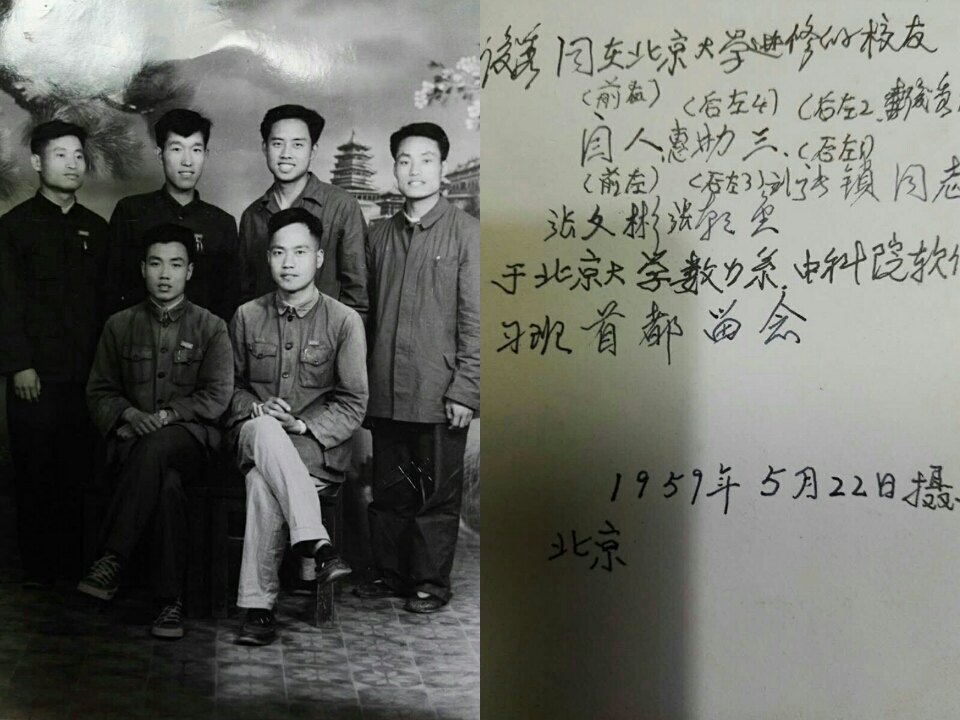 同在北京大学进修的校友
(前右) (后左4) (后左2
闫人惠劝三、(后左1)
(前左) (后左3) 同志
张文彬张
于北京大学数力系.中科院软件
习班首都留念
1959年5月22日摄
北京